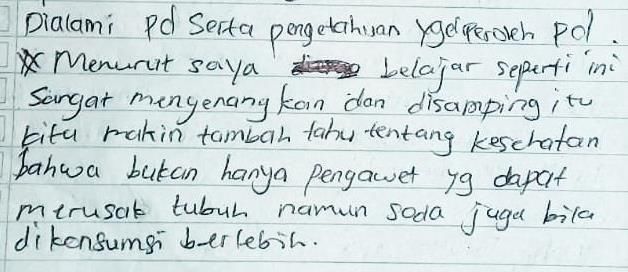 Dialami pd Serta pengetahuan yg diperoleh pd.
* Menurut saya belajar seperti ini
Sangat menyenangkan dan disamping itu
kita makin tambah tahu tentang kesehatan
bahwa bukan hanya pengawet yg dapat
merusak tubuh namun soda juga bila
dikonsumsi berlebih.